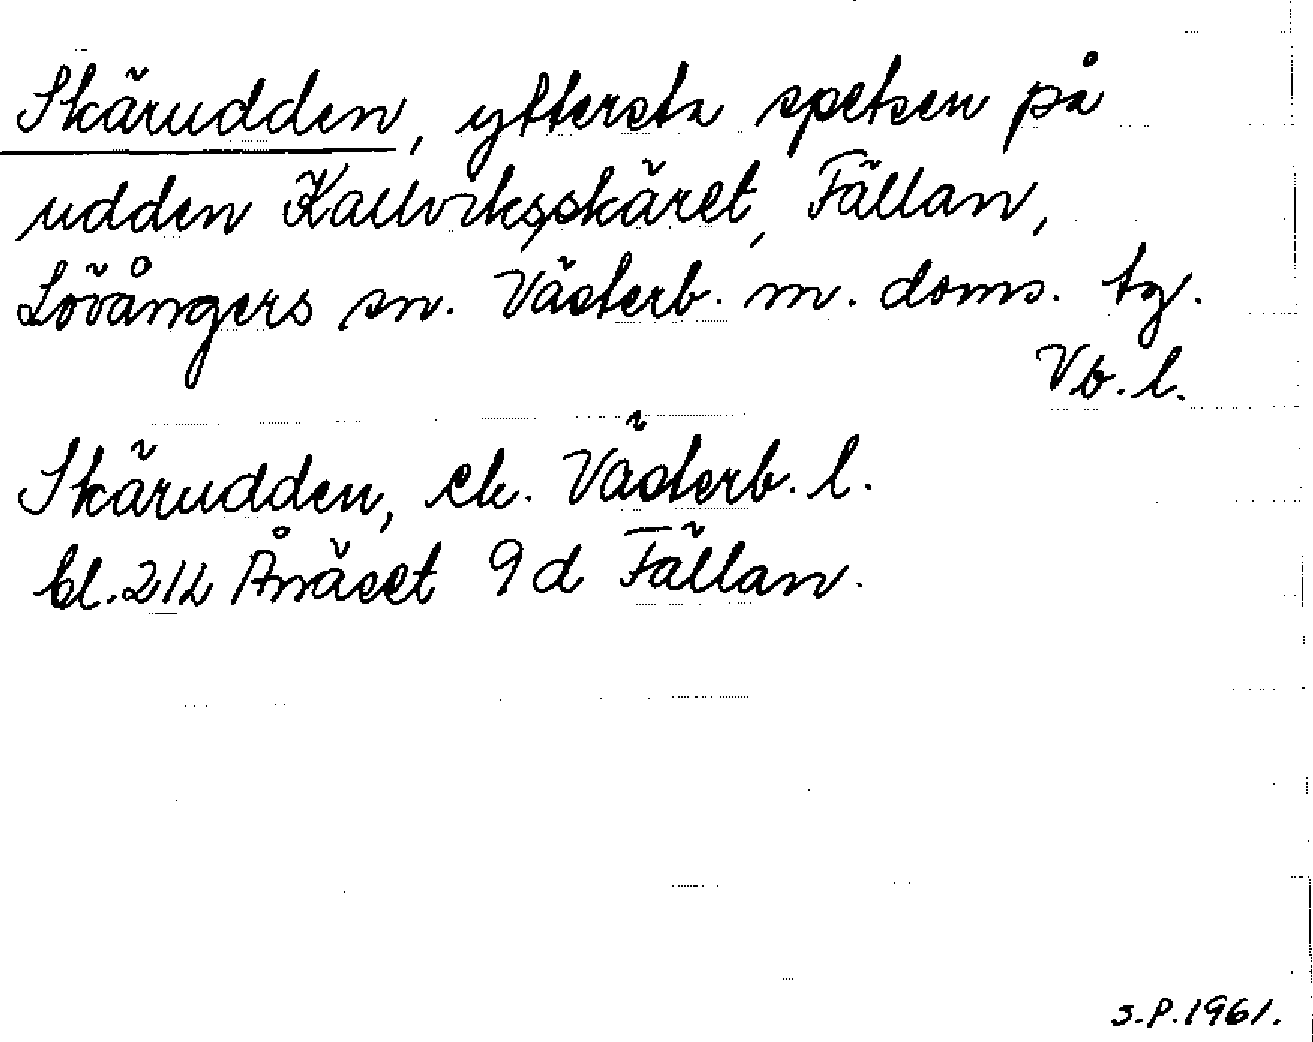 Skärudden, yttersta spetsen på
udden Kallviksskäret, Fällan,
Lövångers sn. Västerb. m. doms. tg.
Vb. l.
Skärudden, ek. Västerb. l.
bl. 21L Ånäset 9d Fällan.
S.P. 1961.